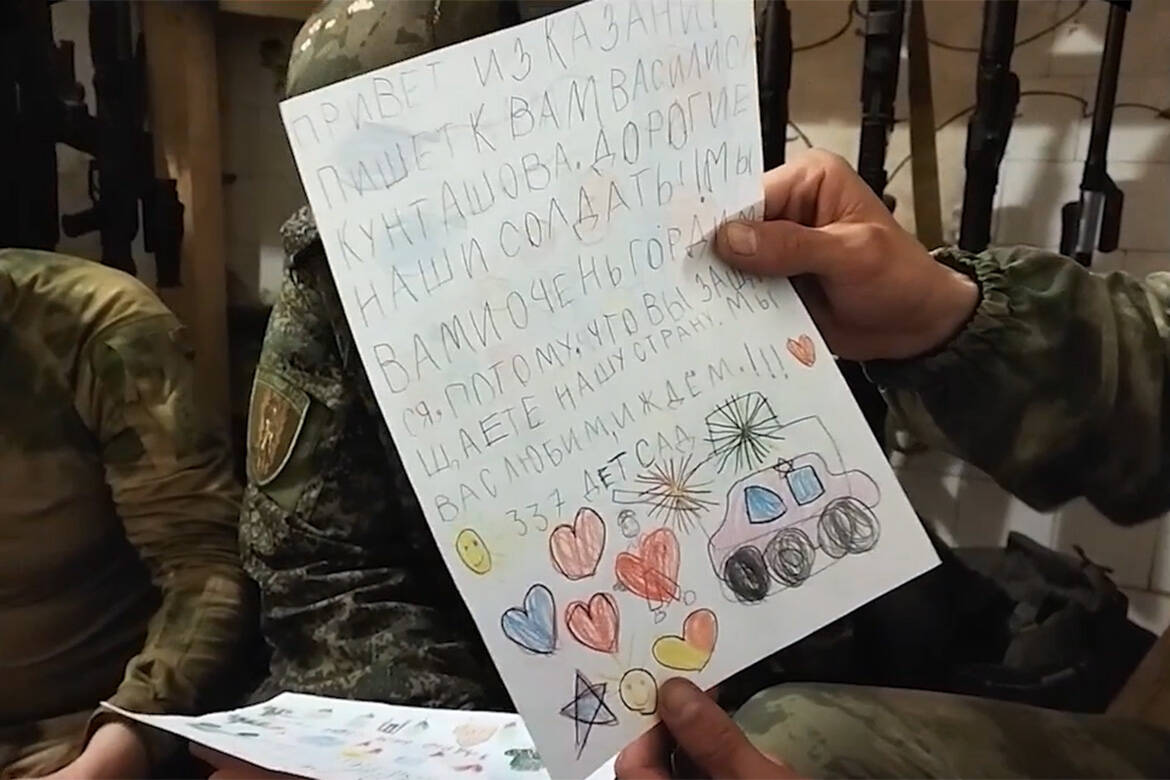 ПРИВЕТ ИЗ КАЗАНИ!
ПИШЕТ К ВАМ ВАСИЛИСА
КУНТАШОВА. ДОРОГИЕ
НАШИ СОЛДАТЫ!! МЫ
ВАМИ ОЧЕНЬ ГОРДИМ
СЯ, ПОТОМУ, ЧТО ВЫ ЗАЩИ
ЩАЕТЕ НАШУ СТРАНУ. МЫ
ВАС ЛЮБИМ, И ЖДЕМ.!!!
337 ДЕТ САД